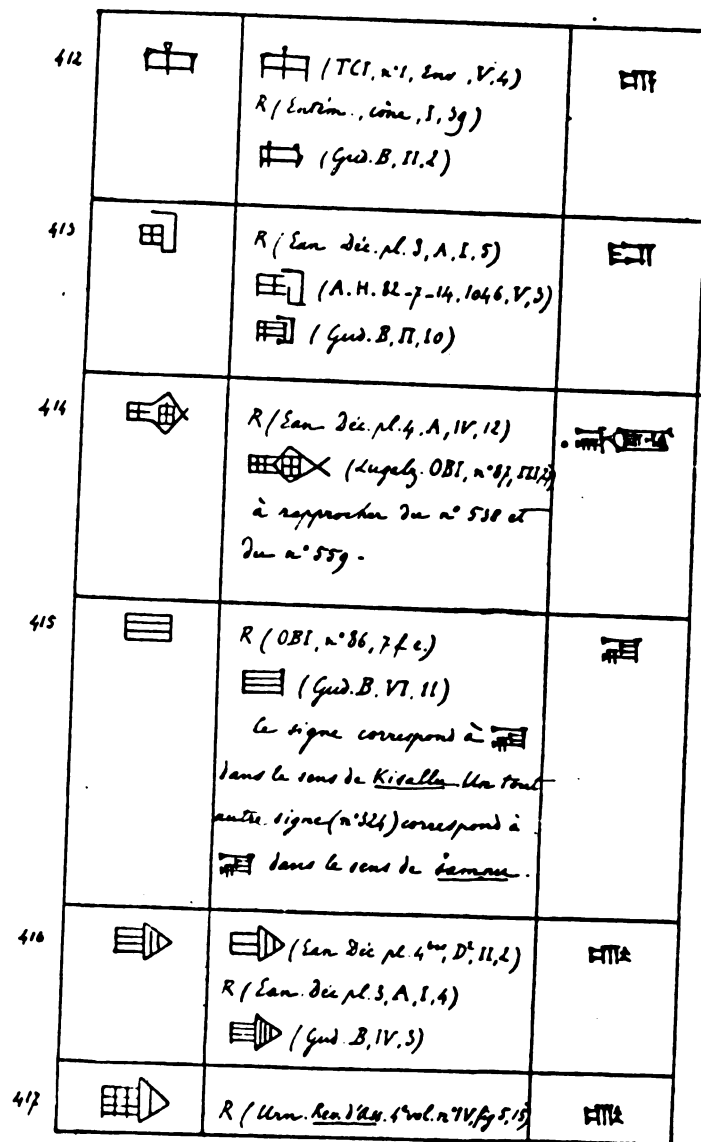 412
(TCI, n°1, Ens, V, 4)
R (Entém., cône, I, 39)
(Gud. B, II, 2)
413
R (Ean Déc. pl. 3, A, I, 5)
(A.H. 82-7-14, 1046, V, 3)
(Gud. B, II, 10)
414
R (Ean Déc. pl. 4, A, IV, 12)
(Lugalz. OBI, n°87,
à rapprocher du n° 538 et
du n° 559.
415
R (OBI, n°86, 7 f c.)
(Gud. B, VI, 11)
Ce signe correspond à
dans le sens de Kisallu. Un tout
autre signe (n°324) correspond à
dans le sens de šamnu.
416
(Ean Déc pl. 4 bis, D², II, 2)
R (Ean. Déc pl. 3, A, I, 4)
(Gud. B, IV, 3)
417
R (Urn. Rev. d'Ass. 4e vol. n° IV, fig 5, 15)